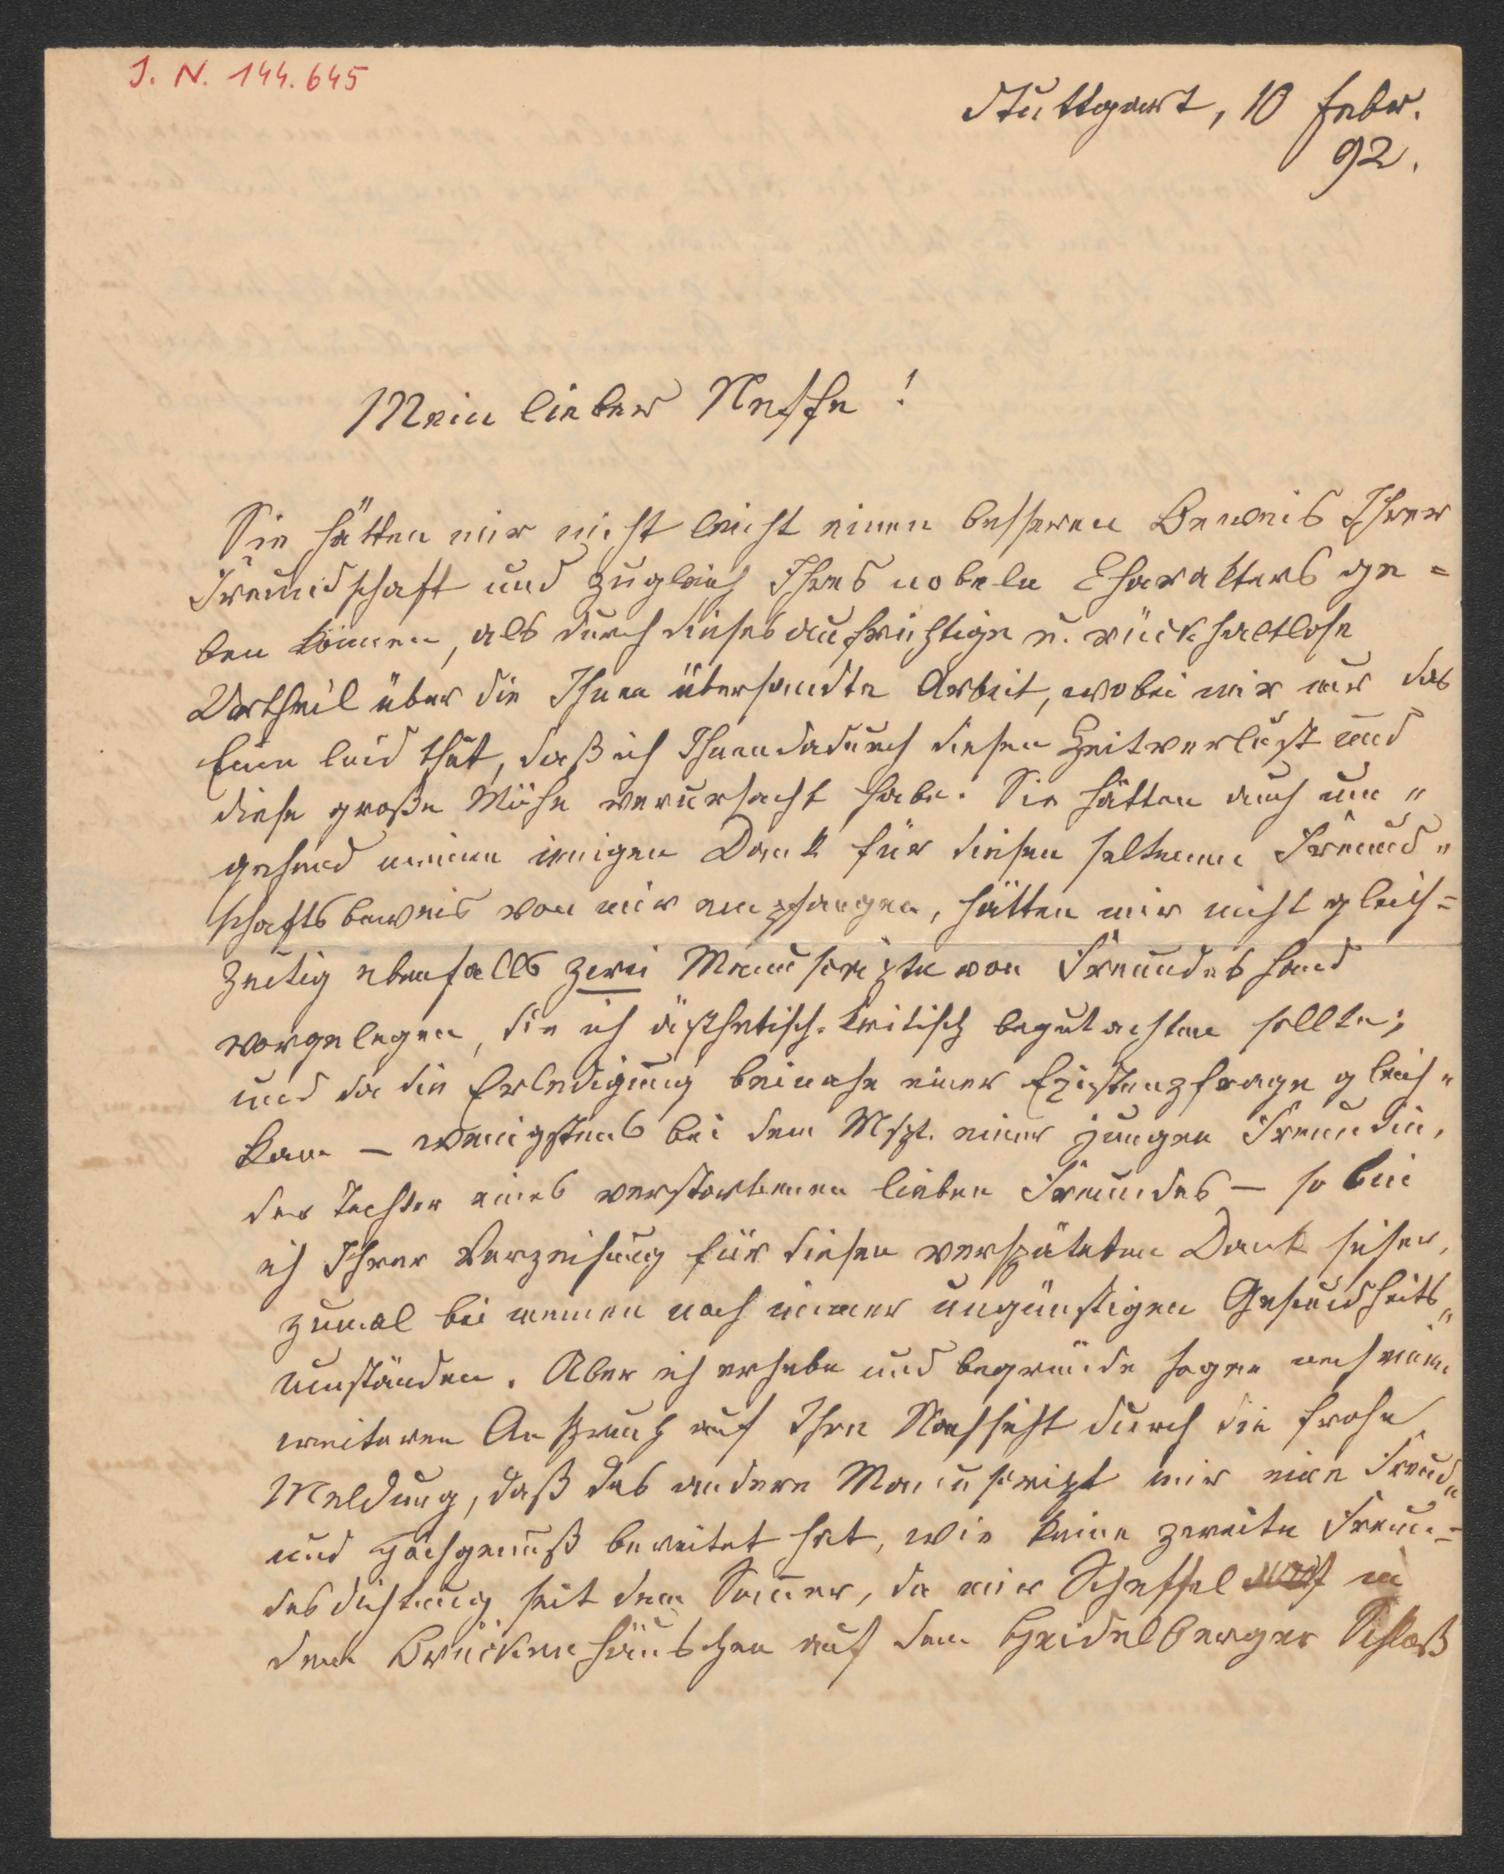 J. N. 144.645
Stuttgart, 10 Febr.
92.
Mein lieber Neffe!
Sie hätten mir nicht leicht einen besseren Beweis Ihrer
Freundschaft und zugleich Ihres nobeln Charakters ge=
ben können, als durch dieses aufrichtige u. rückhaltlose
Urtheil über die Ihnen übersandte Arbeit, wobei mir nur das
Eine leid thut, daß ich Ihnen dadurch diesen Zeitverlust und
diese große Mühe verursacht habe. Sie hätten auch um„
gehend meinen innigen Dank für diesen seltenen Freund„
schaftsbeweis von mir empfangen, hätten mir nicht gleich=
zeitig ebenfalls zwei Manuscripte von Freundeshand
vorgelegen, die ich ästhetisch-kritisch begutachten sollte;
und da die Erledigung beinahe einer Existenzfrage gleich„
kam – wenigstens bei dem Mspt. einer jungen Freundin,
der Tochter eines verstorbenen lieben Freundes – so bin
ich Ihrer Verzeihung für diesen verspäteten Dank sicher,
zumal bei meinen noch immer ungünstigen Gesundheits„
umständen. Aber ich erhebe und begründe sogar noch einen
weiteren Anspruch auf Ihre Nachsicht durch die frohe
Meldung, daß das andere Manuscript mir eine Freud„
und Hochgenuß bereitet hat, wie keine zweite Freun=
desdichtung seit dem Sommer, da mir Scheffel in
dem Brückenhäuschen auf dem Heidelberger Schloß